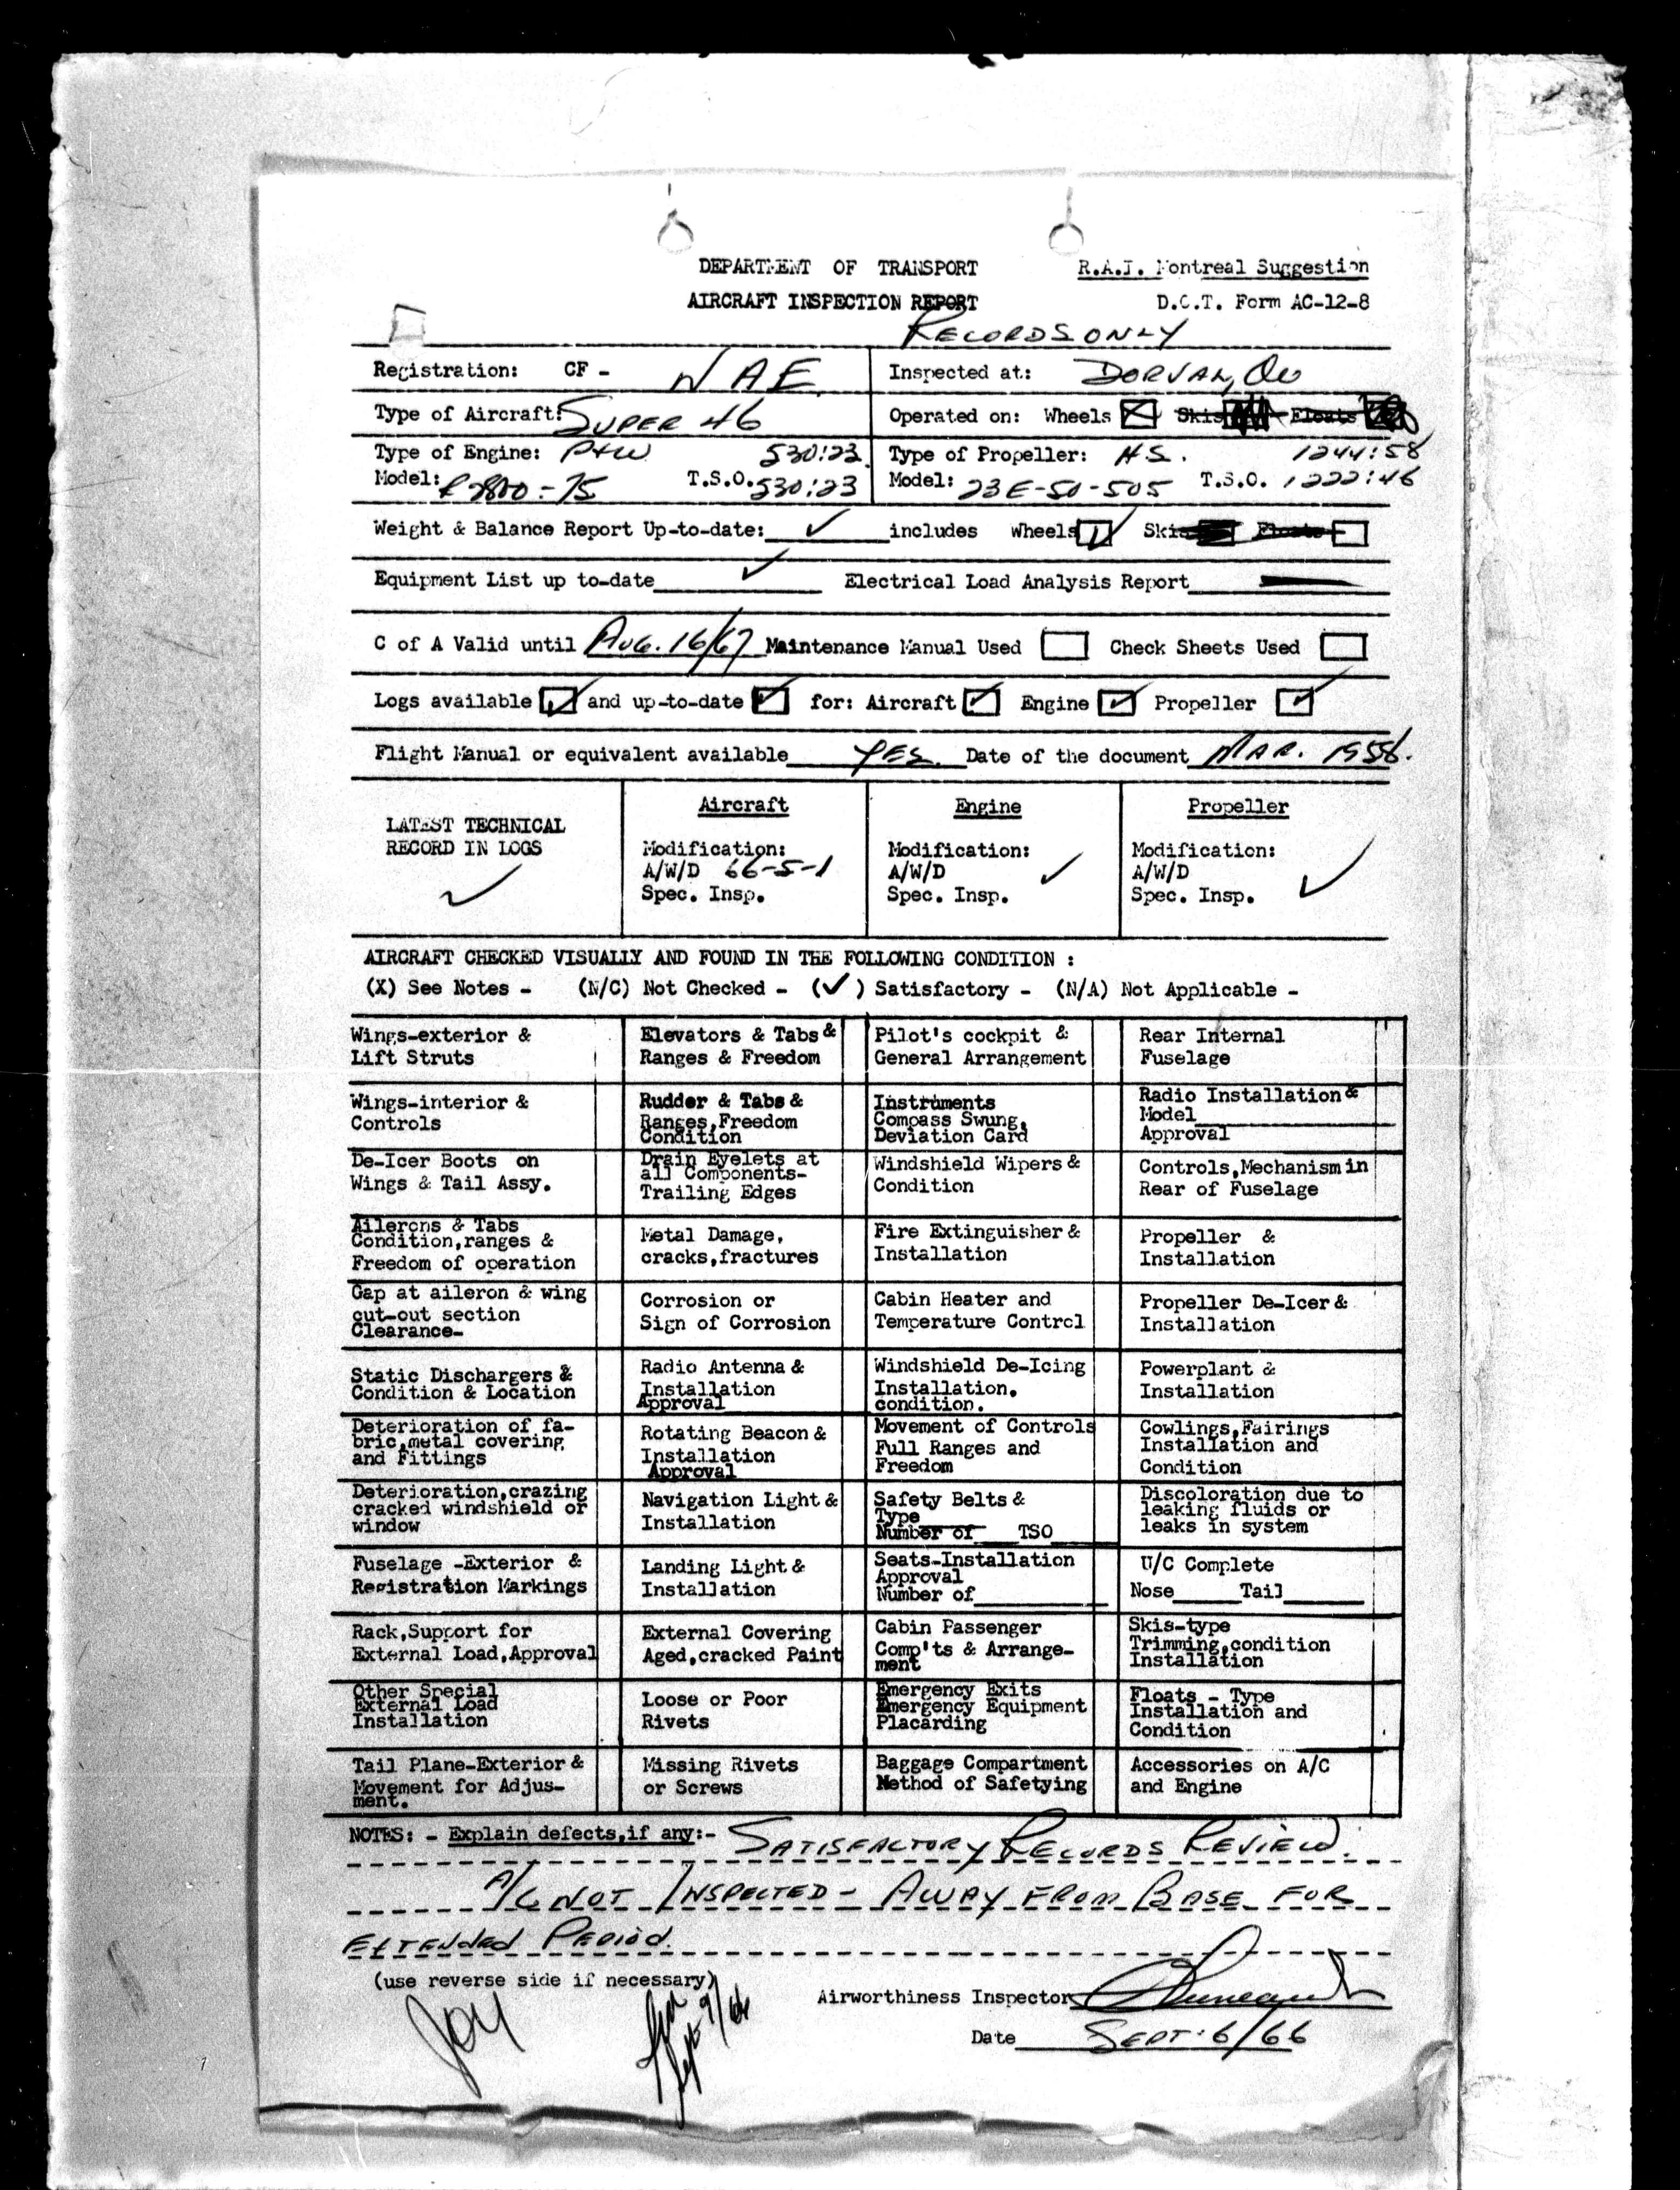 DEPARTMENT OF TRANSPORT
R.A.I. Montreal Suggestion
AIRCRAFT INSPECTION REPORT
D.O.T. Form AC-12-8
RECORDS ONLY
Registration: CF - NAE
Inspected at: DORVAL,
Type of Aircraft: SUPER 46
Operated on: Wheels Skis Floats
Type of Engine: P+W 530:23
Type of Propeller: H.S. 1244:58
Model: R2800-75 T.S.O. 530:23
Model: 23E-50-505 T.S.O. 1222:46
Weight & Balance Report Up-to-date: ✓ includes Wheels ✓ Skis Floats
Equipment List up to-date ✓ Electrical Load Analysis Report —
C of A Valid until AUG. 16/67 Maintenance Manual Used Check Sheets Used
Logs available ✓ and up-to-date ✓ for: Aircraft ✓ Engine ✓ Propeller ✓
Flight Manual or equivalent available YES. Date of the document MAR. 1958.
LATEST TECHNICAL
RECORD IN LOGS
✓
Aircraft
Modification:
A/W/D 66-5-1
Spec. Insp.
Engine
Modification:
A/W/D ✓
Spec. Insp.
Propeller
Modification:
A/W/D
Spec. Insp. ✓
AIRCRAFT CHECKED VISUALLY AND FOUND IN THE FOLLOWING CONDITION :
(X) See Notes - (N/C) Not Checked - (✓) Satisfactory - (N/A) Not Applicable -
Wings-exterior &
Lift Struts
Elevators & Tabs &
Ranges & Freedom
Pilot's cockpit &
General Arrangement
Rear Internal
Fuselage
Wings-interior &
Controls
Rudder & Tabs &
Ranges,Freedom
Condition
Instruments
Compass Swung,
Deviation Card
Radio Installation &
Model
Approval
De-Icer Boots on
Wings & Tail Assy.
Drain Eyelets at
all Components-
Trailing Edges
Windshield Wipers &
Condition
Controls,Mechanism in
Rear of Fuselage
Ailerons & Tabs
Condition,ranges &
Freedom of operation
Metal Damage,
cracks,fractures
Fire Extinguisher &
Installation
Propeller &
Installation
Gap at aileron & wing
cut-out section
Clearance-
Corrosion or
Sign of Corrosion
Cabin Heater and
Temperature Control
Propeller De-Icer &
Installation
Static Dischargers &
Condition & Location
Radio Antenna &
Installation
Approval
Windshield De-Icing
Installation.
condition.
Powerplant &
Installation
Deterioration of fa-
bric,metal covering
and Fittings
Rotating Beacon &
Installation
Approval
Movement of Controls
Full Ranges and
Freedom
Cowlings,Fairings
Installation and
Condition
Deterioration,crazing
cracked windshield or
window
Navigation Light &
Installation
Safety Belts &
Type
Number of TSO
Discoloration due to
leaking fluids or
leaks in system
Fuselage -Exterior &
Registration Markings
Landing Light &
Installation
Seats-Installation
Approval
Number of
U/C Complete
Nose Tail
Rack,Support for
External Load,Approval
External Covering
Aged,cracked Paint
Cabin Passenger
Comp'ts & Arrange-
ment
Skis-type
Trimming,condition
Installation
Other Special
External Load
Installation
Loose or Poor
Rivets
Emergency Exits
Emergency Equipment
Placarding
Floats - Type
Installation and
Condition
Tail Plane-Exterior &
Movement for Adjus-
ment.
Missing Rivets
or Screws
Baggage Compartment
Method of Safetying
Accessories on A/C
and Engine
NOTES: - Explain defects,if any:- SATISFACTORY RECORDS REVIEW.
A/C NOT INSPECTED - AWAY FROM BASE FOR
EXTENDED PERIOD.
(use reverse side if necessary)
Airworthiness Inspector
Date SEPT. 6/66
Sept 9/66